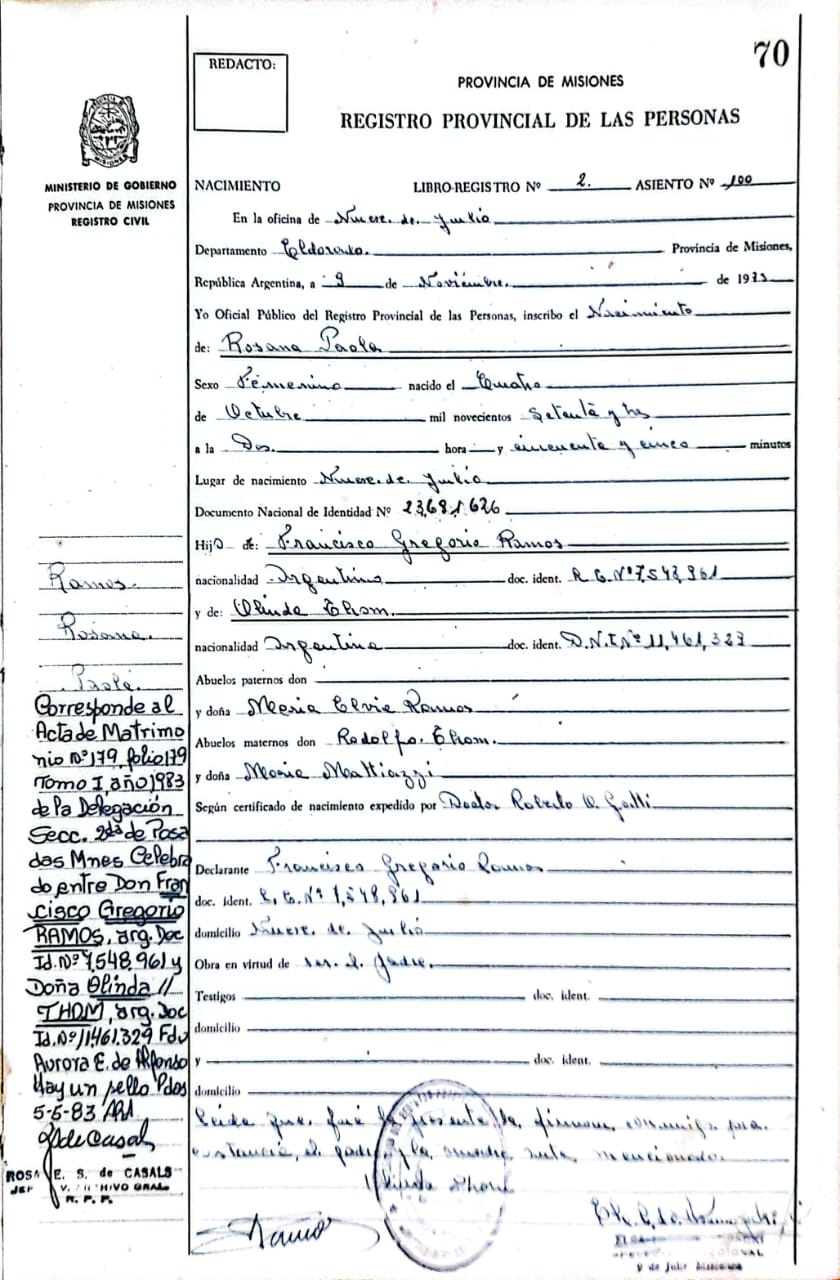 70
REDACTO:
PROVINCIA DE MISIONES
REGISTRO PROVINCIAL DE LAS PERSONAS
MISIONES
MINISTERIO DE GOBIERNO
PROVINCIA DE MISIONES
REGISTRO CIVIL
NACIMIENTO LIBRO-REGISTRO Nº 2. ASIENTO Nº 100
En la oficina de Nueve. de. Julio
Departamento Eldorado. Provincia de Misiones,
República Argentina, a 9 de Noviémbre. de 1973
Yo Oficial Público del Registro Provincial de las Personas, inscribo el Nacimiento
de: Rosana Paola
Sexo Femenino nacido el Cuatro
de Octubre mil novecientos Setenta y tres
a la Dos. hora y cincuenta y cinco minutos
Lugar de nacimiento Nueve. de. Julio
Documento Nacional de Identidad Nº 23,681.626
Hijo de: Francisco Gregorio Ramos
nacionalidad Argentina doc. ident.
y de: Olinda Thom.
nacionalidad Argentina doc. ident. D.N.I.Nº 11,461,329
Abuelos paternos don
y doña Maria Elvia Ramos
Abuelos maternos don Rodolfo. Thom.
y doña Maria Mattiazzi
Según certificado de nacimiento expedido por Doctor Roberto O. Gatti
Declarante Francisco Gregorio Ramos
doc. ident. Nº 7,548,961
domicilio Nueve. de Julio
Obra en virtud de ser. el Padre.
Testigos doc. ident.
domicilio
y doc. ident.
domicilio
Leida que. fué la presente la firman conmigo para
constancia, el padre y la madre ante mencionado.
Olinda Thom
Ramos
9 de Julio Misiones
Ramos.
Rosana.
Paola.
Corresponde al
Acta de Matrimo
nio Nº 179, folio 179
Tomo I, año 1983
de la Delegación
Secc. 2da de Posa
das Mnes Celebra
do entre Don Fran
cisco Gregorio
RAMOS, arg. Doc
Id. Nº 7.548.961 y
Doña Olinda //
THOM, arg. Doc
Id. Nº 11461.329 Fdo
Aurora E. de Alfonso
Hay un sello Pdas
5-5-83
ROSA E. S. de CASALS
R. P. P.